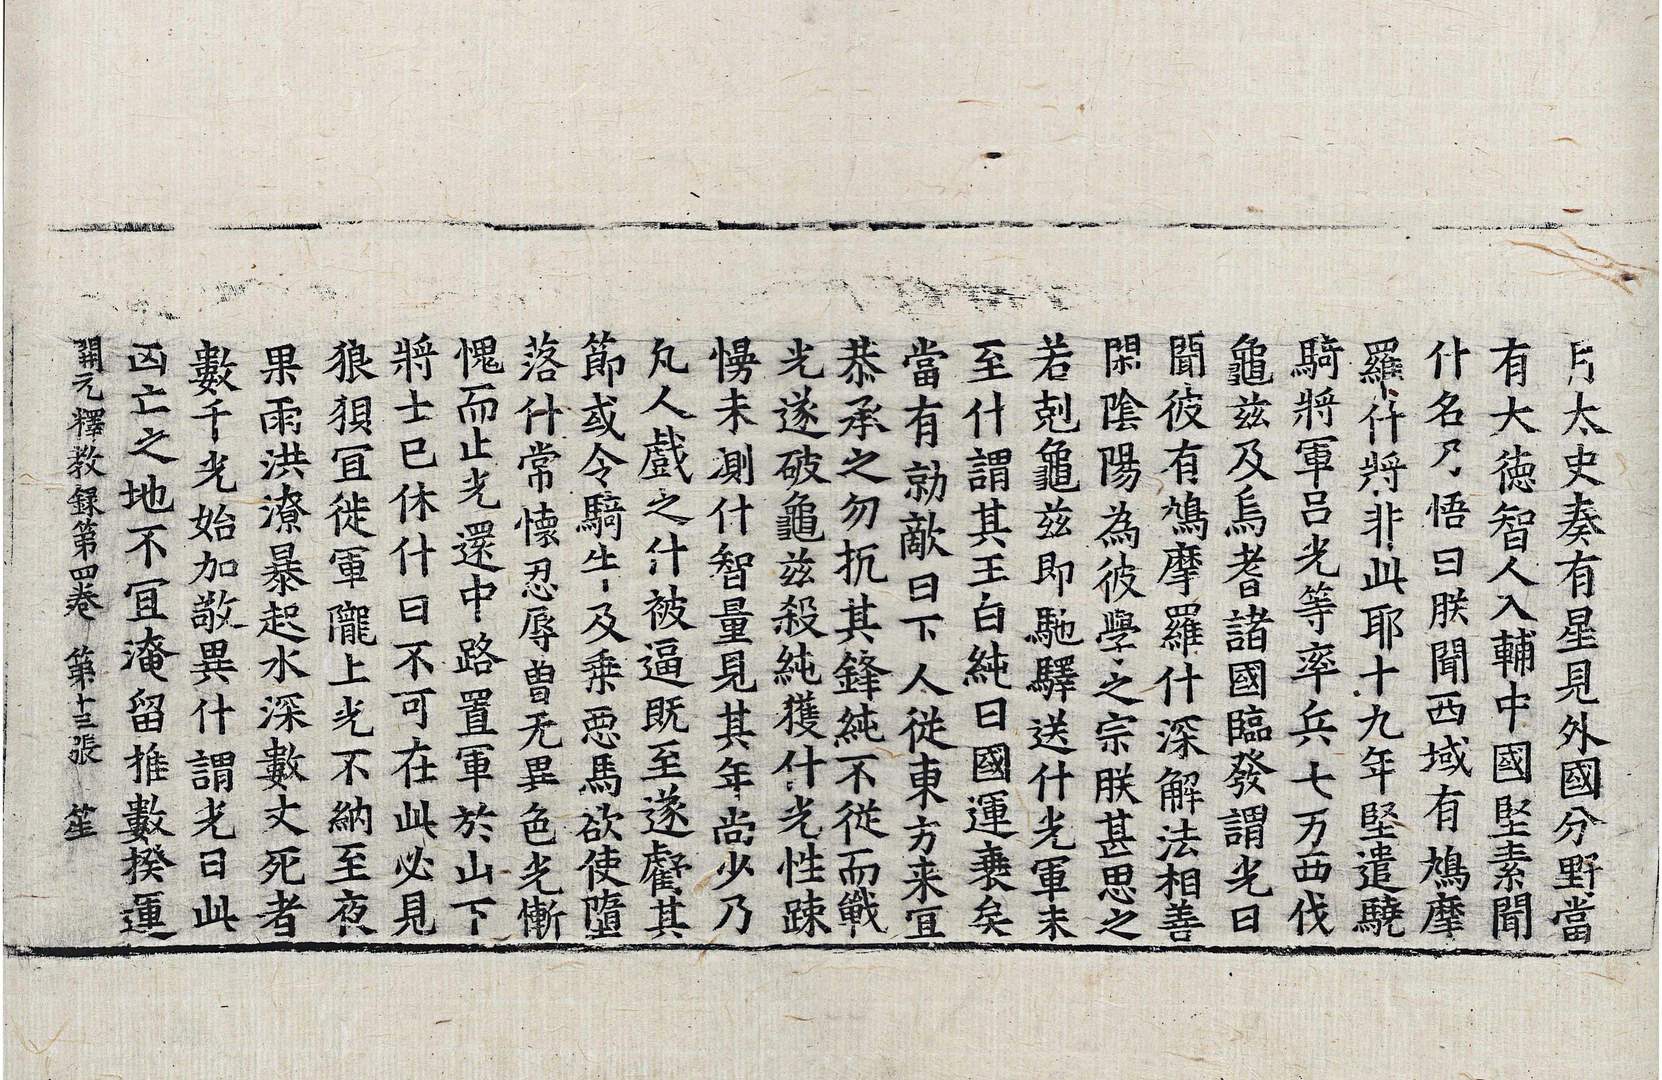 月太史奏有星見外國分野當
有大德智人入輔中國堅素聞
什名乃悟曰朕聞西域有鳩摩
羅什將非此耶十九年堅遣驍
騎將軍呂光等率兵七万西伐
龜茲及烏耆諸國臨發謂光曰
聞彼有鳩摩羅什深解法相善
閑陰陽為彼學之宗朕甚思之
若剋龜茲即馳驛送什光軍未
至什謂其王白純曰國運衰矣
當有勍敵曰下人從東方来冝
恭承之勿抗其鋒純不從而戰
光遂破龜茲殺純獲什光性踈
慢未測什智量見其年尚少乃
凡人戲之什被逼既至遂虧其
節或令騎牛及乗惡馬欲使墮
落什常懷忍辱曾无異色光慚
愧而止光還中路置軍於山下
將士已休什曰不可在此必見
狼狽冝徙軍隴上光不納至夜
果雨洪潦暴起水深數丈死者
數千光始加敬異什謂光曰此
凶亡之地不冝淹留推數揆運
開元釋教録第四卷 第十三張 笙